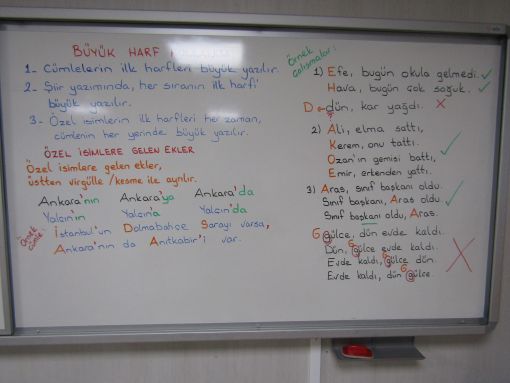 BÜYÜK HARF
1- Cümlelerin ilk harfleri büyük yazılır.
2- Şiir yazımında, her sıranın ilk harfi
büyük yazılır.
3- Özel isimlerin ilk harfleri her zaman,
cümlenin her yerinde büyük yazılır.
ÖZEL İSİMLERE GELEN EKLER
Özel isimlere gelen ekler,
üstten virgülle /kesme ile ayrılır.
Ankara'nın Ankara'ya Ankara'da
Yalçın'ın Yalçın'a Yalçın'da
Örnek cümle:
İstanbul'un Dolmabahçe Sarayı varsa,
Ankara'nın da Anıtkabir'i var.
Örnek
çalışmalar:
1) Efe, bugün okula gelmedi. ✓
Hava, bugün çok soğuk. ✓
D ← dün, kar yağdı. X
2) Ali, elma sattı,
Kerem, onu tattı.
Ozan'ın gemisi battı,
Emir, erkenden yattı.
3) Aras, sınıf başkanı oldu.
Sınıf başkanı, Aras oldu.
Sınıf başkanı oldu, Aras.
G gülce, dün evde kaldı.
Dün, G gülce evde kaldı.
Evde kaldı, G gülce dün.
Evde kaldı, dün G gülce.